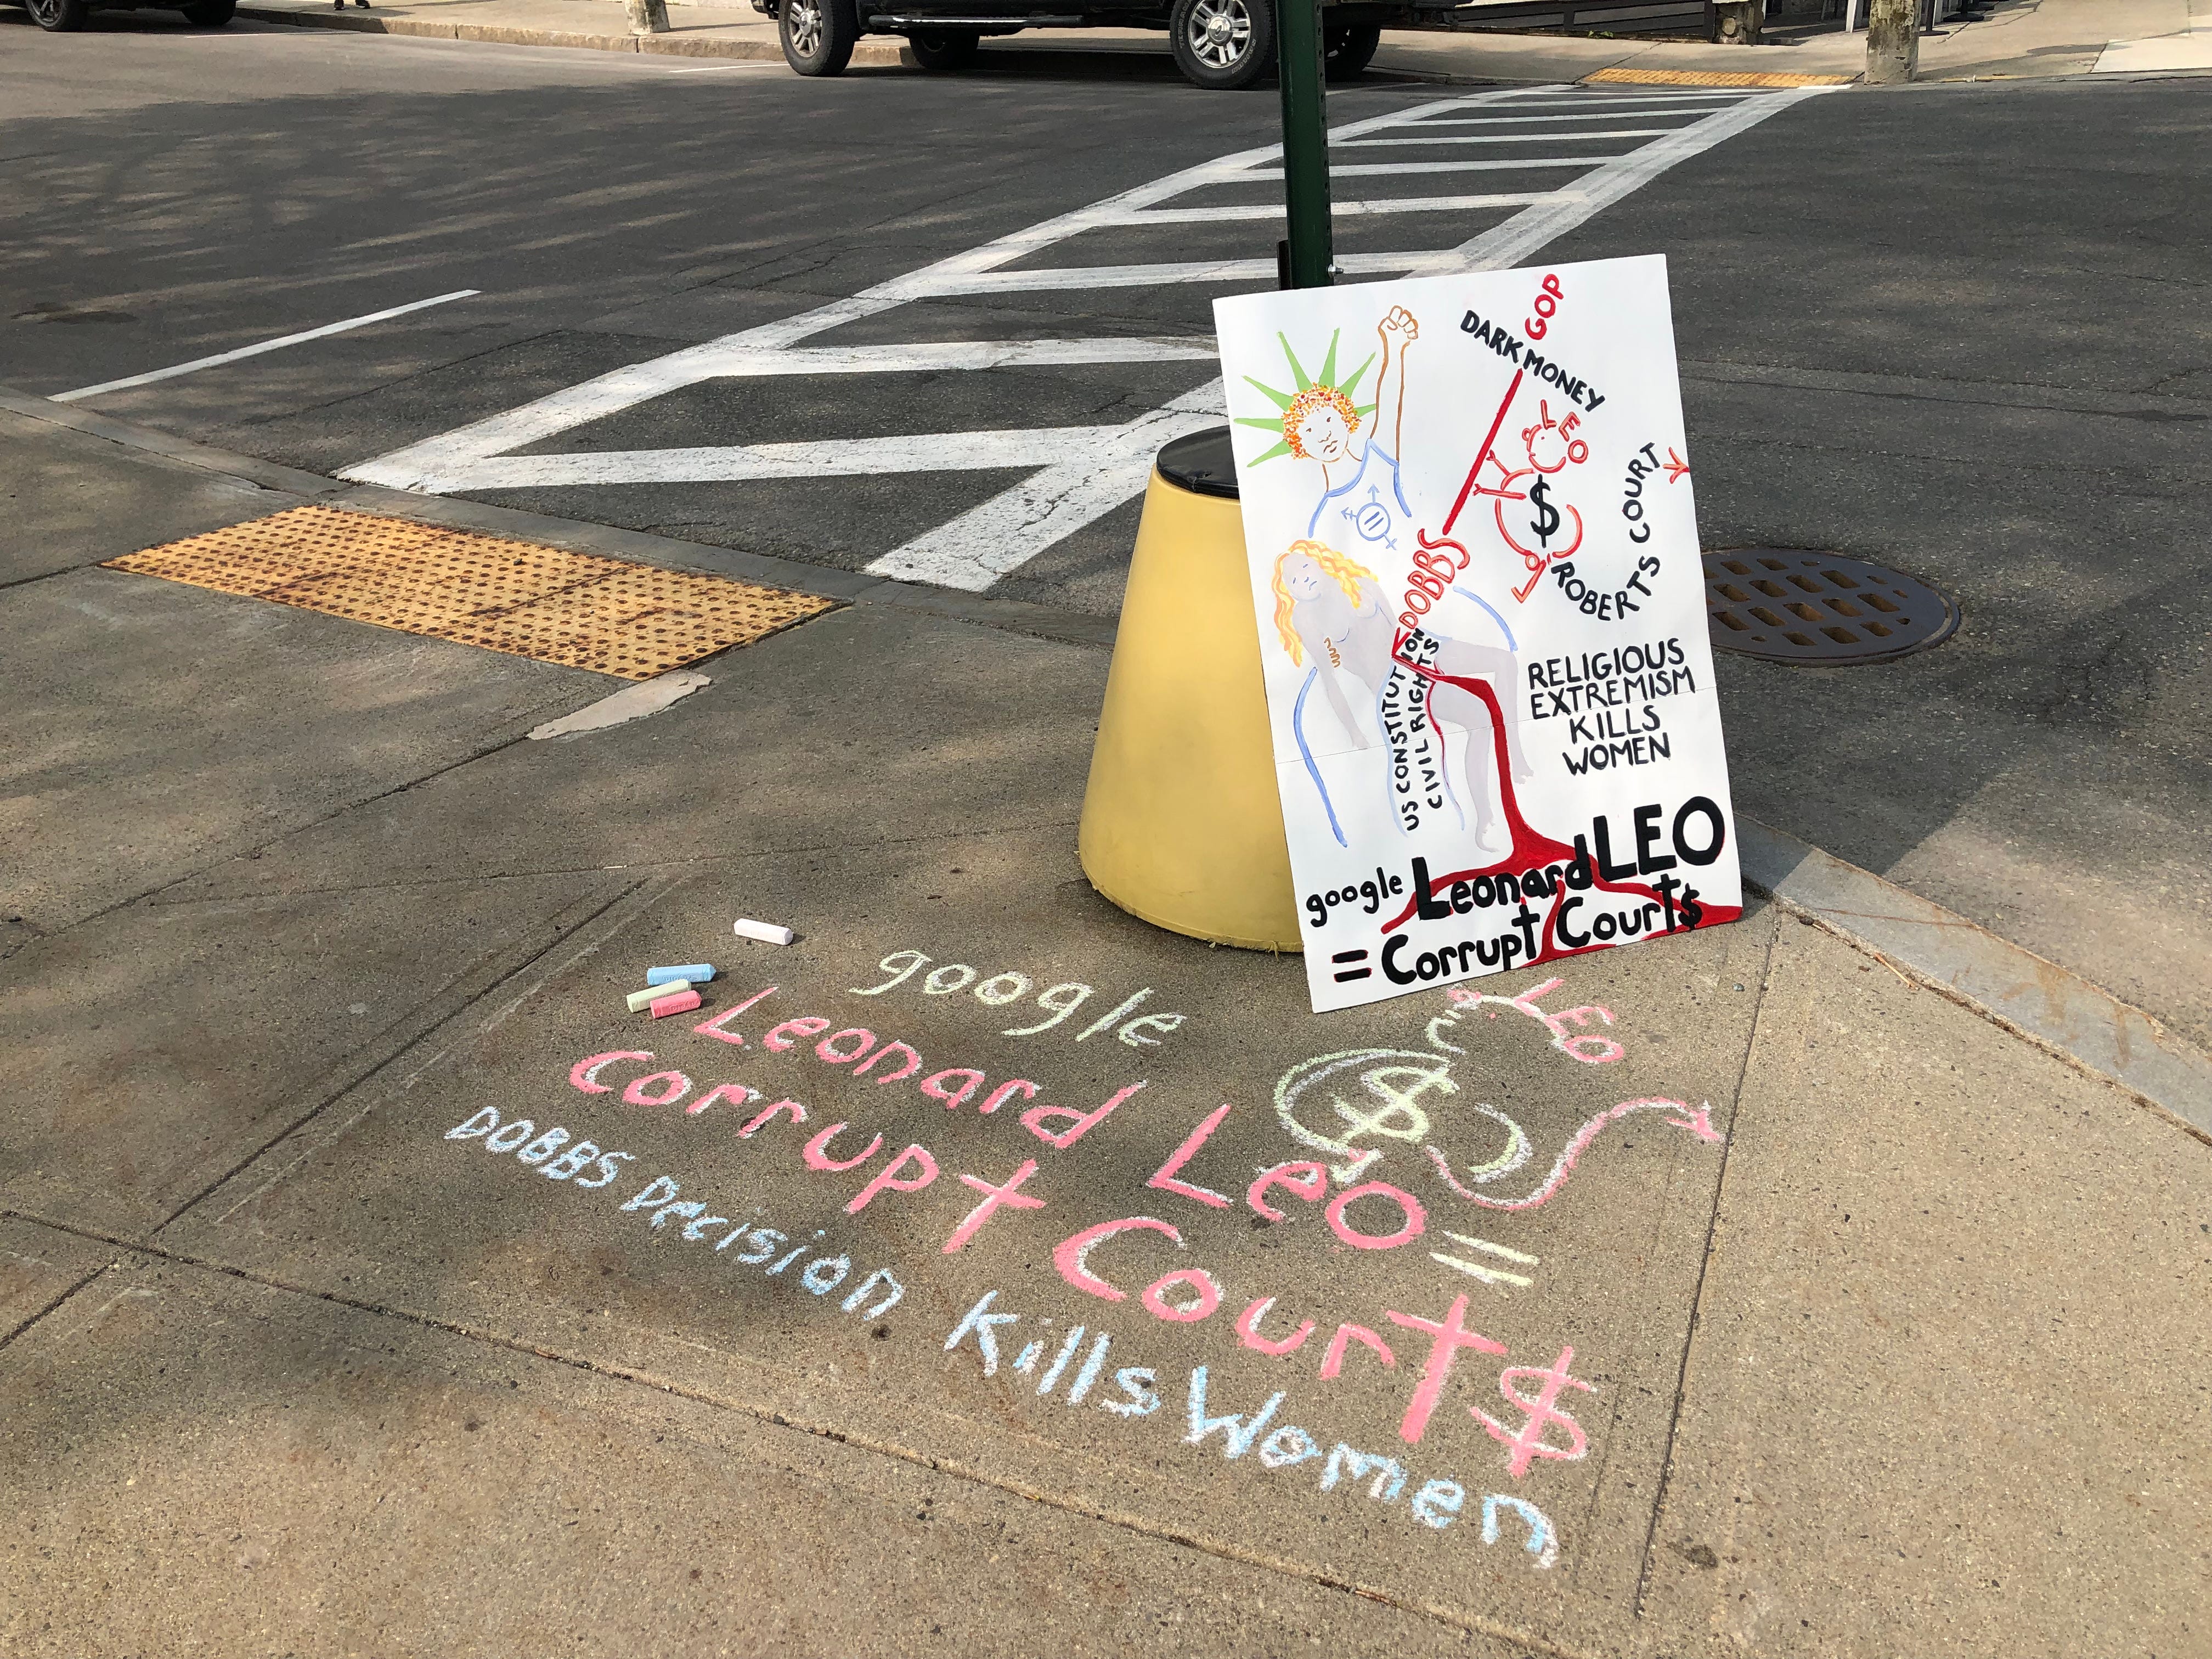 GOP
DARK MONEY
LEO
$
ROBERTS COURT
DOBBS
US CONSTITUTION
CIVIL RIGHTS
RELIGIOUS
EXTREMISM
KILLS
WOMEN
google Leonard LEO
= Corrupt Court$
google
Leonard Leo =
Corrupt Court$
DOBBS Decision Kills Women
LEO
$